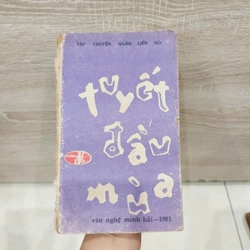 TẬP TRUYỆN NGẮN LIÊN XÔ
tuyết
đầu
mùa
văn nghệ minh hải - 1985